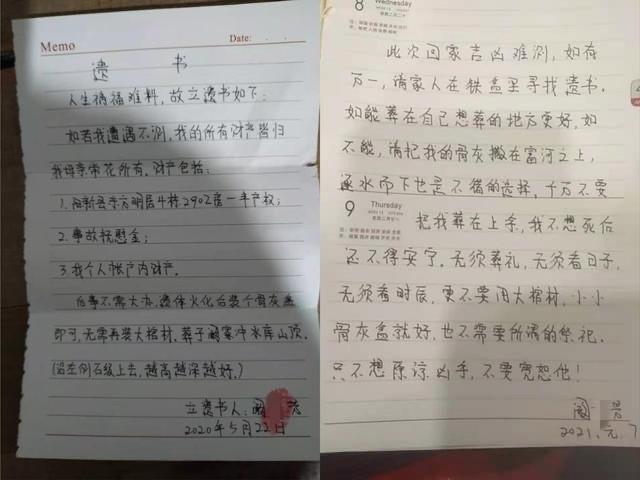 Memo
Date:
遗 书
人生祸福难料，故立遗书如下：
如若我遭遇不测，我的所有财产皆归
我母亲常花所有，财产包括：
1.阳新县东方明居4栋2902房一半产权；
2.事故抚慰金；
3.我个人帐户内财产。
后事不需大办，遗体火化台装个骨灰盒
即可，无需再装大棺材，葬于阚家冲水库山顶。
（沿左侧石级上去，越高越深越好。）
立遗书人：阚 芳
2020年5月22日
8
Wednesday
此次回家吉凶难测，如有
万一，请家人在铁盒里寻找遗书。
如能葬在自己想葬的地方更好，如
不能，请把我的骨灰撒在富河之上，
逐水而下也是不错的选择，千万不要
9
Thursday
把我葬在上手，我不想死后
还不得安宁。无须葬礼，无须看日子，
无须看时辰，更不要用大棺材，小小
骨灰盒就好，也不需要所谓的祭祀。
只不想原谅凶手，不要宽恕他！
阚
2021.元.7